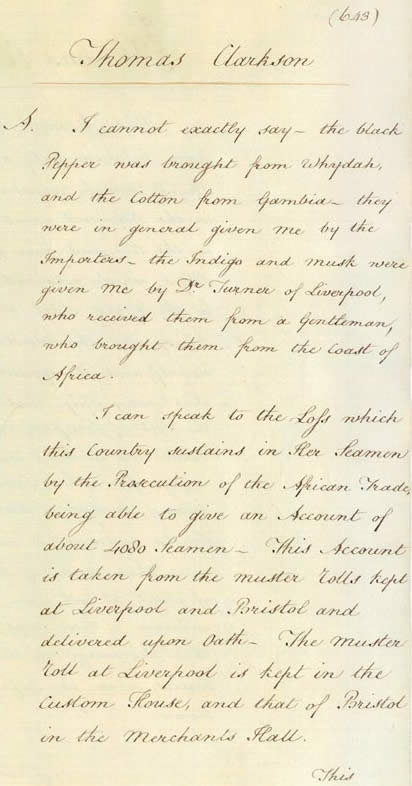 (643)
Thomas Clarkson
A. I cannot exactly say – the black
Pepper was brought from Whydah,
and the Cotton from Gambia – they
were in general given me by the
Importers – the Indigo and Musk were
given me by Dr Turner of Liverpool,
who received them from a Gentleman,
who brought them from the Coast of
Africa.
I can speak to the Loss which
this Country sustains in Her Seamen
by the Prosecution of the African Trade,
being able to give an Account of
about 4080 Seamen – This Account
is taken from the Muster Rolls kept
at Liverpool and Bristol and
delivered upon Oath – The Muster
Roll at Liverpool is kept in the
Custom House, and that of Bristol
in the Merchants Hall.
This